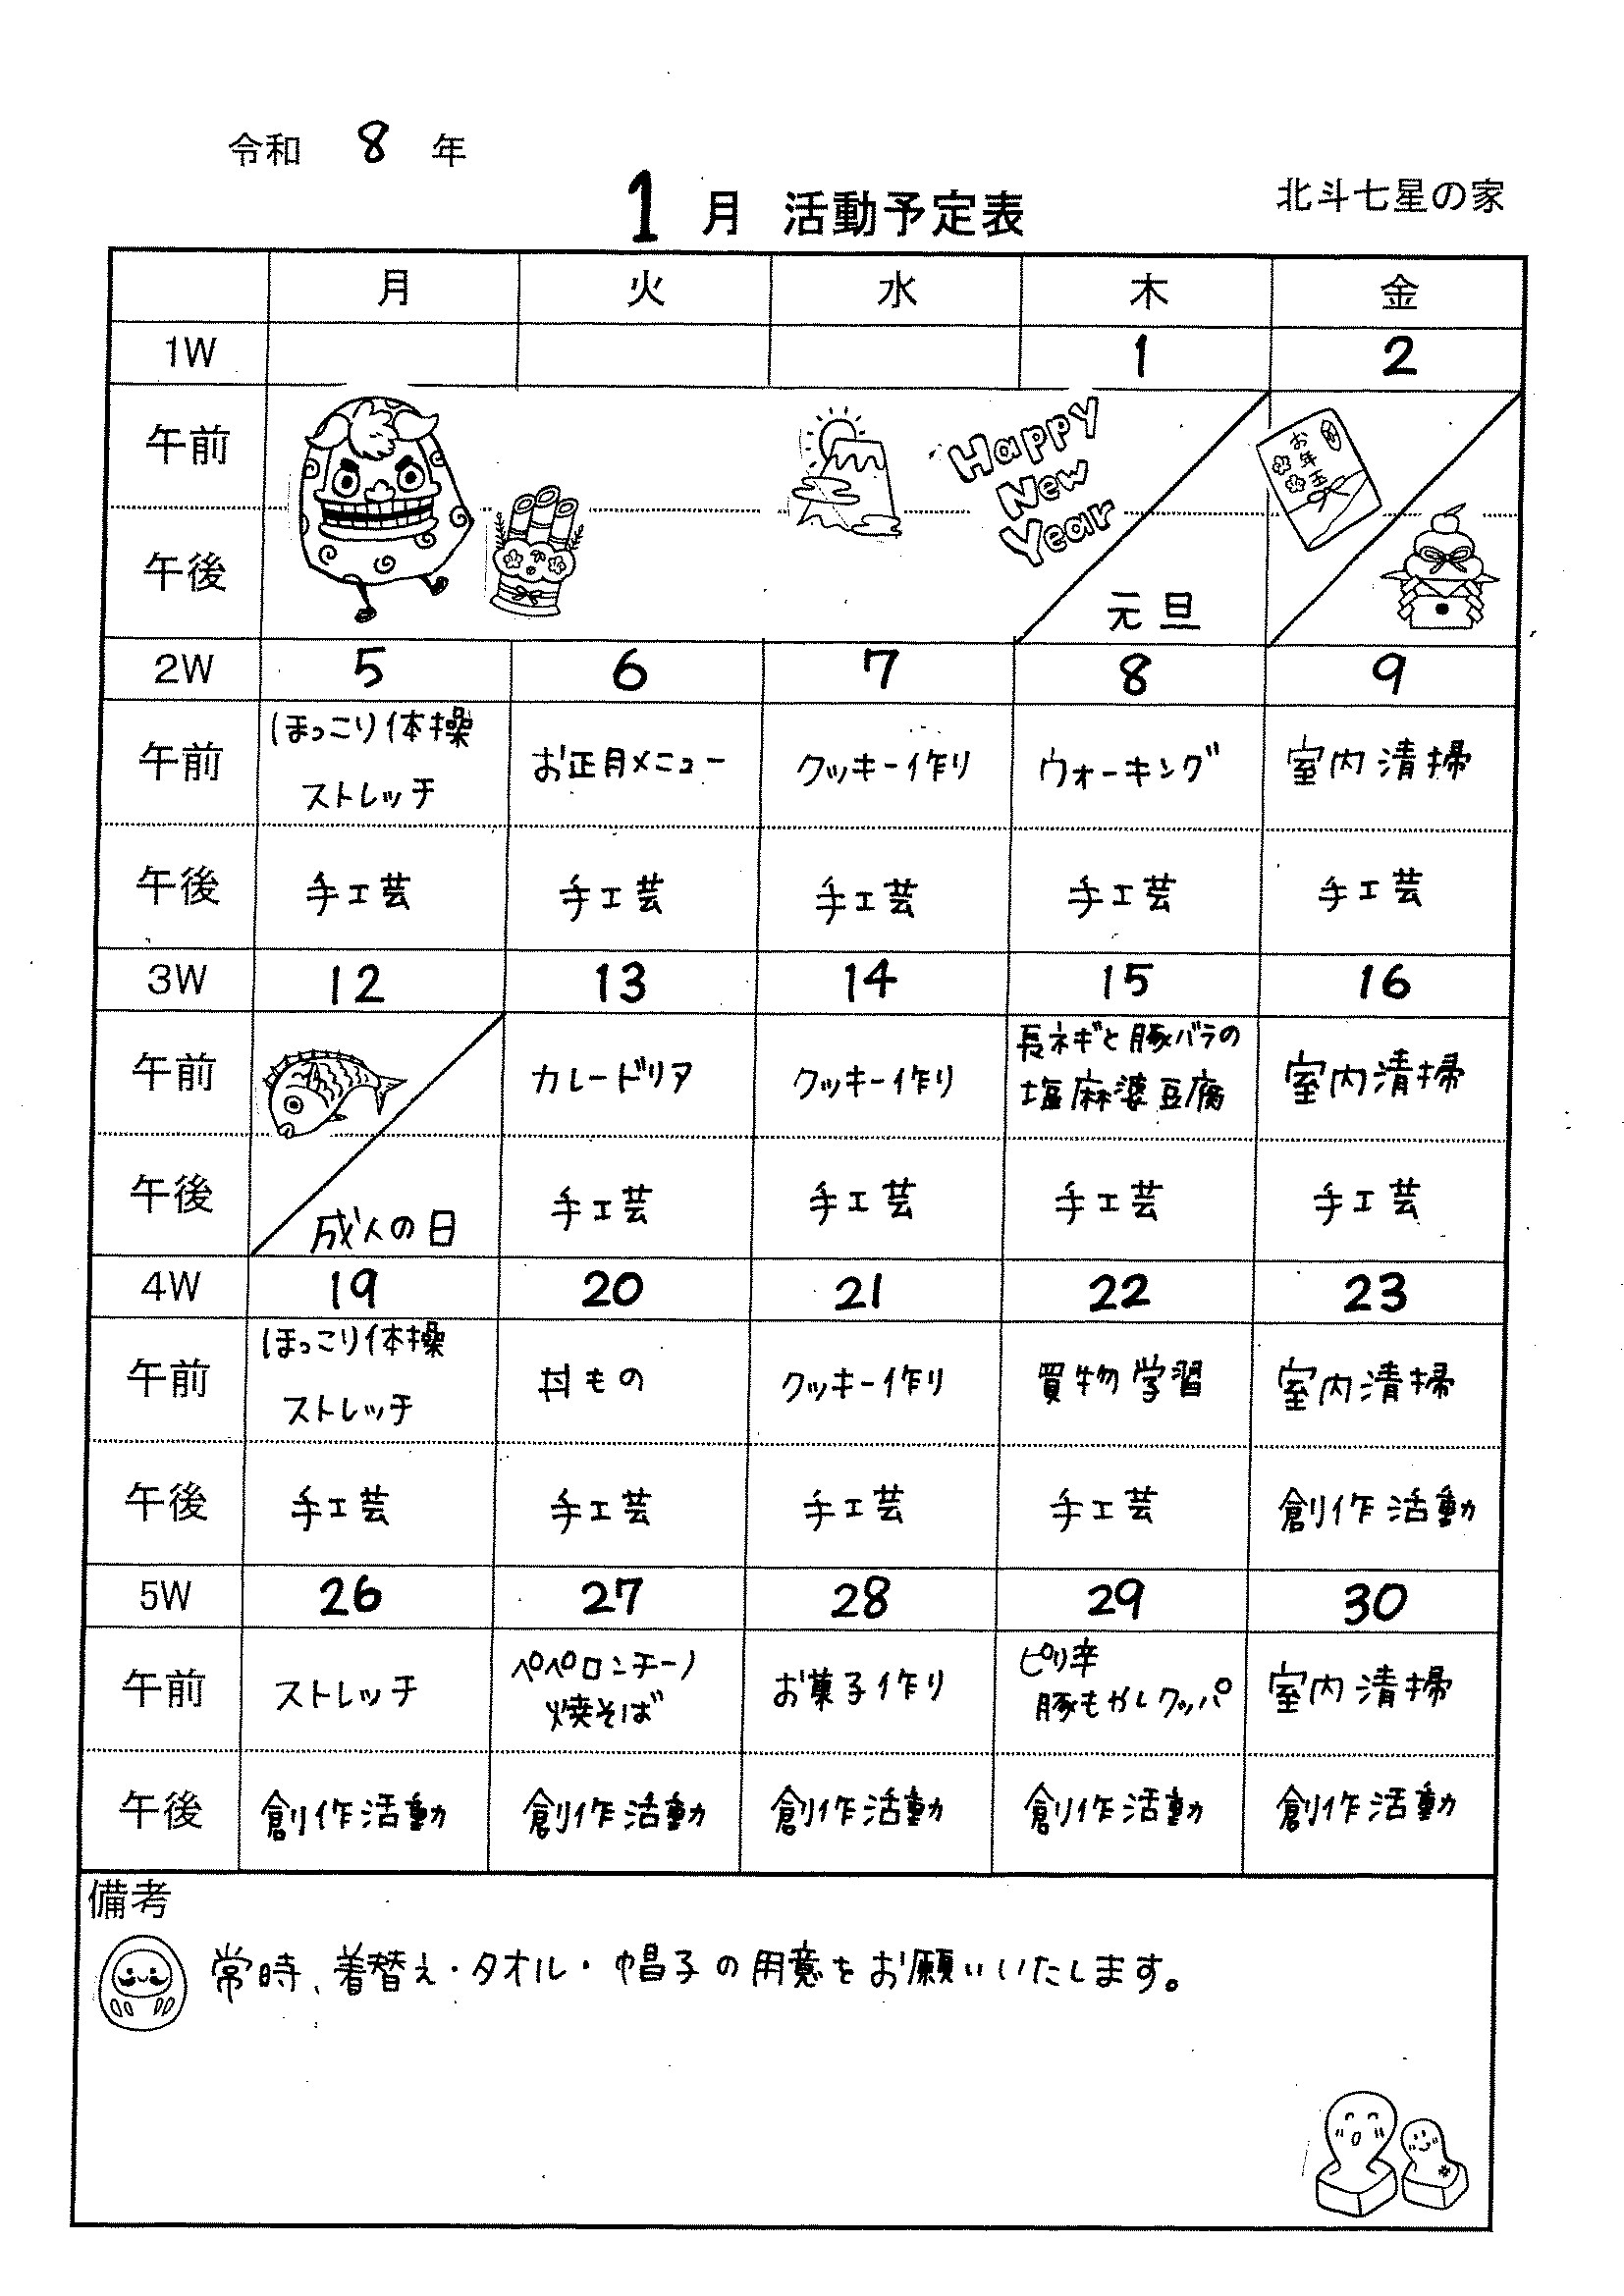 令和 8 年
1 月 活動予定表
北斗七星の家
月 火 水 木 金
1W 1 2
午前
Happy
New
Year
お年玉
午後
元旦
2W 5 6 7 8 9
午前 ほっこり体操 ストレッチ お正月メニュー クッキー作り ウォーキング 室内清掃
午後 手工芸 手工芸 手工芸 手工芸 手工芸
3W 12 13 14 15 16
午前 カレードリア クッキー作り 長ネギと豚バラの 塩麻婆豆腐 室内清掃
午後 成人の日 手工芸 手工芸 手工芸 手工芸
4W 19 20 21 22 23
午前 ほっこり体操 ストレッチ 丼もの クッキー作り 買物学習 室内清掃
午後 手工芸 手工芸 手工芸 手工芸 創作活動
5W 26 27 28 29 30
午前 ストレッチ ペペロンチーノ 焼そば お菓子作り ピリ辛 豚もやしクッパ 室内清掃
午後 創作活動 創作活動 創作活動 創作活動 創作活動
備考
常時、着替え・タオル・帽子の用意をお願いいたします。